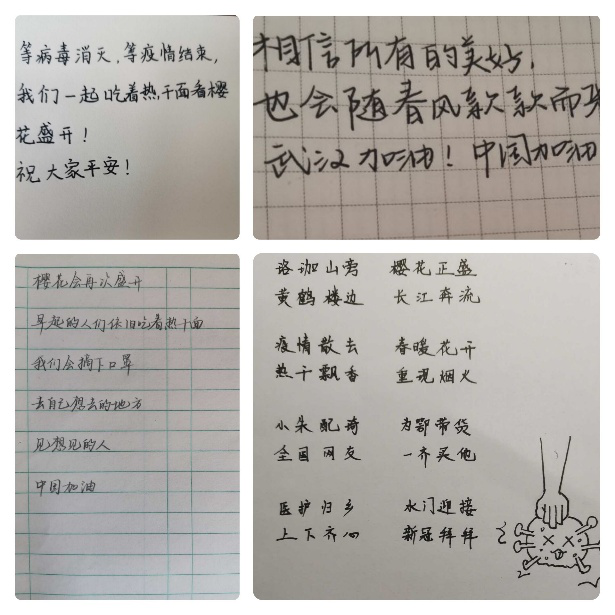 等病毒消灭,等疫情结束,
我们一起吃着热干面看樱
花盛开!
祝大家平安!
相信所有的美好,
也会随春风款款而来
武汉加油!中国加油
樱花会再次盛开
早起的人们依旧吃着热干面
我们会摘下口罩
去自己想去的地方
见想见的人
中国加油
珞珈山旁 樱花正盛
黄鹤楼边 长江奔流
疫情散去 春暖花开
热干飘香 重现烟火
小朱配琦 为鄂带货
全国网友 一齐买他
医护归乡 水门迎接
上下齐心 新冠拜拜